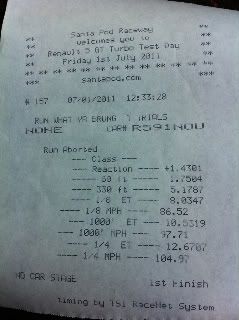 ** Santa Pod Raceway **
** welcomes you to **
** Renault 5 GT Turbo Test Day **
** Friday 1st July 2011 **
** ** ** ** ** ** ** ** ** ** ** **
*** santapod.com ***
# 157 07/01/2011 12:33:20
RUN WHAT YA BRUNG TRIALS
NONE CAR# R591NOU
Run Aborted
--- Class ---
--- Reaction --- +1.4301
---- 60 ft ---- 1.7504
---- 330 ft ---- 5.1787
---- 1/8 ET ---- 8.0347
---- 1/8 MPH ---- 86.52
---- 1000' ET ---- 10.5319
---- 1000' MPH ---- 97.71
---- 1/4 ET ---- 12.6707
---- 1/4 MPH ---- 104.97
NO CAR STAGE 1st Finish
timing by TSI RaceNet System